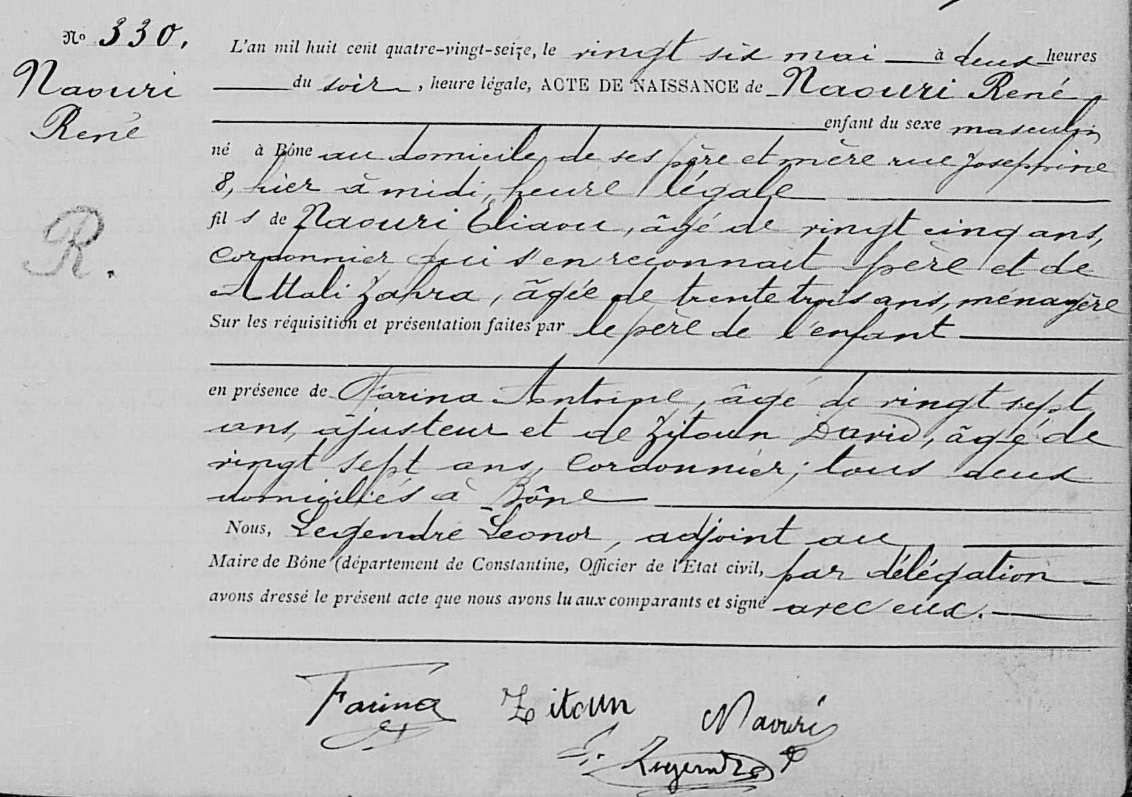 No 330.
Naouri
René
R.
L'an mil huit cent quatre-vingt-seize, le vingt six mai à deux heures
du soir, heure légale, ACTE DE NAISSANCE de Naouri René
enfant du sexe masculin
né à Bône au domicile de ses père et mère rue Joséphine
8, hier à midi, heure légale
fils de Naouri Eliaou, âgé de vingt cinq ans,
cordonnier qui s'en reconnait père et de
Attali Zahra, âgée de trente trois ans, ménagère
Sur les réquisition et présentation faites par le père de l'enfant
en présence de Farina Antoine, âgé de vingt sept
ans, ajusteur et de Zitoun David, âgé de
vingt sept ans, cordonnier; tous deux
domiciliés à Bône
Nous, Legendre Léonor, adjoint au
Maire de Bône (département de Constantine, Officier de l'Etat civil, par délégation
avons dressé le présent acte que nous avons lu aux comparants et signé avec eux.
Farina Zitoun Naouri
L. Legendre